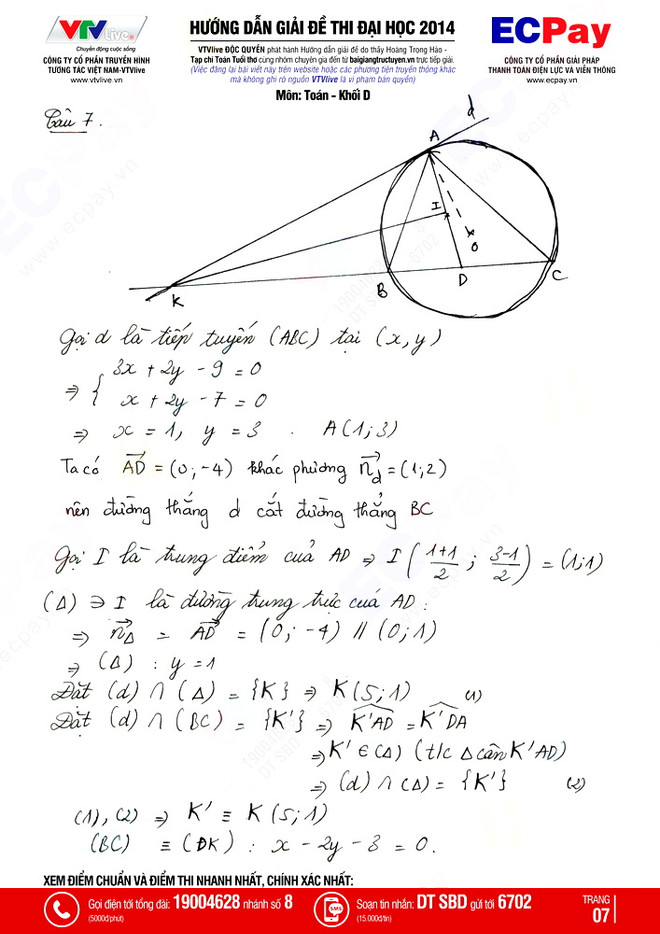 VTVLive
Chuyển động cuộc sống
CÔNG TY CỔ PHẦN TRUYỀN HÌNH
TƯƠNG TÁC VIỆT NAM-VTVlive
www.vtvlive.vn
HƯỚNG DẪN GIẢI ĐỀ THI ĐẠI HỌC 2014
VTVlive ĐỘC QUYỀN phát hành Hướng dẫn giải đề do thầy Hoàng Trọng Hảo -
Tạp chí Toán Tuổi thơ cùng nhóm chuyên gia đến từ baigiangtructuyen.vn trực tiếp giải.
(Việc đăng lại bài viết này trên website hoặc các phương tiện truyền thông khác
mà không ghi rõ nguồn VTVlive là vi phạm bản quyền)
Môn: Toán - Khối D
ECPay
CÔNG TY CỔ PHẦN GIẢI PHÁP
THANH TOÁN ĐIỆN LỰC VÀ VIỄN THÔNG
www.ecpay.vn
Câu 7.
d
A
I
O
K
B
D
C
Gọi d là tiếp tuyến (ABC) tại (x,y)
⇒ { 3x + 2y - 9 = 0
x + 2y - 7 = 0
⇒ x = 1, y = 3 . A(1;3)
Ta có →AD = (0;-4) khác phương →n_d = (1;2)
nên đường thẳng d cắt đường thẳng BC
Gọi I là trung điểm của AD ⇒ I((1+1)/2 ; (3-1)/2) = (1;1)
(Δ) ∋ I là đường trung trực của AD:
⇒ →n_Δ = →AD = (0;-4) // (0;1)
⇒ (Δ) : y = 1
Đặt (d) ∩ (Δ) = {K} ⇒ K(5;1) (1)
Đặt (d) ∩ (BC) = {K'} ⇒ K'AD = K'DA
⇒ K' ∈ (Δ) (t/c Δ cân K'AD)
⇒ (d) ∩ (Δ) = {K'} (2)
(1), (2) ⇒ K' ≡ K(5;1)
(BC) ≡ (DK) : x - 2y - 3 = 0.
XEM ĐIỂM CHUẨN VÀ ĐIỂM THI NHANH NHẤT, CHÍNH XÁC NHẤT:
Gọi điện tới tổng đài: 19004628 nhánh số 8
(5000đ/phút)
SMS
Soạn tin nhắn: DT SBD gửi tới 6702
(15.000đ/tn)
TRANG
07